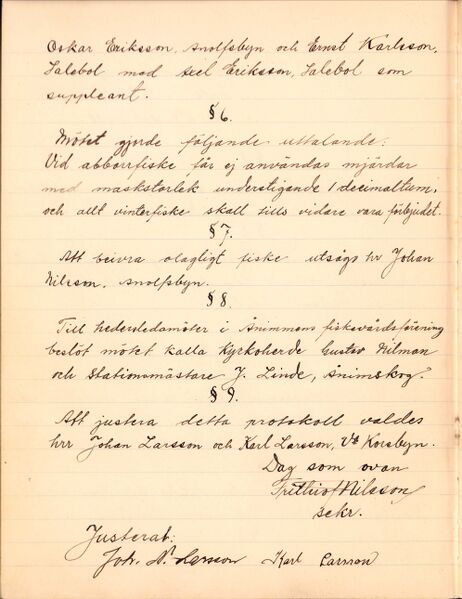 Oskar Eriksson, Anolfsbyn och Ernst Karlsson,
Salebol med Axel Eriksson, Salebol som
suppleant.
§ 6.
Mötet gjorde följande uttalande:
Vid abborrfiske får ej användas mjärdar
med maskstorlek understigande 1 decimaltum,
och allt vinterfiske skall tills vidare vara förbjudet.
§ 7.
Att beivra olagligt fiske utsågs hr Johan
Nilsson, Anolfsbyn.
§ 8.
Till hedersledamöter i Ånimmens fiskevårdsförening
beslöt mötet kalla Kyrkoherde Gustav Nilman
och Stationsmästare J. Linde, Ånimskog.
§ 9.
Att justera detta protokoll valdes
hrr Johan Larsson och Karl Larsson, Va Korsbyn.
Dag som ovan
Frithiof Nilsson
sekr.
Justerat:
Joh. N. Larsson Karl Larsson